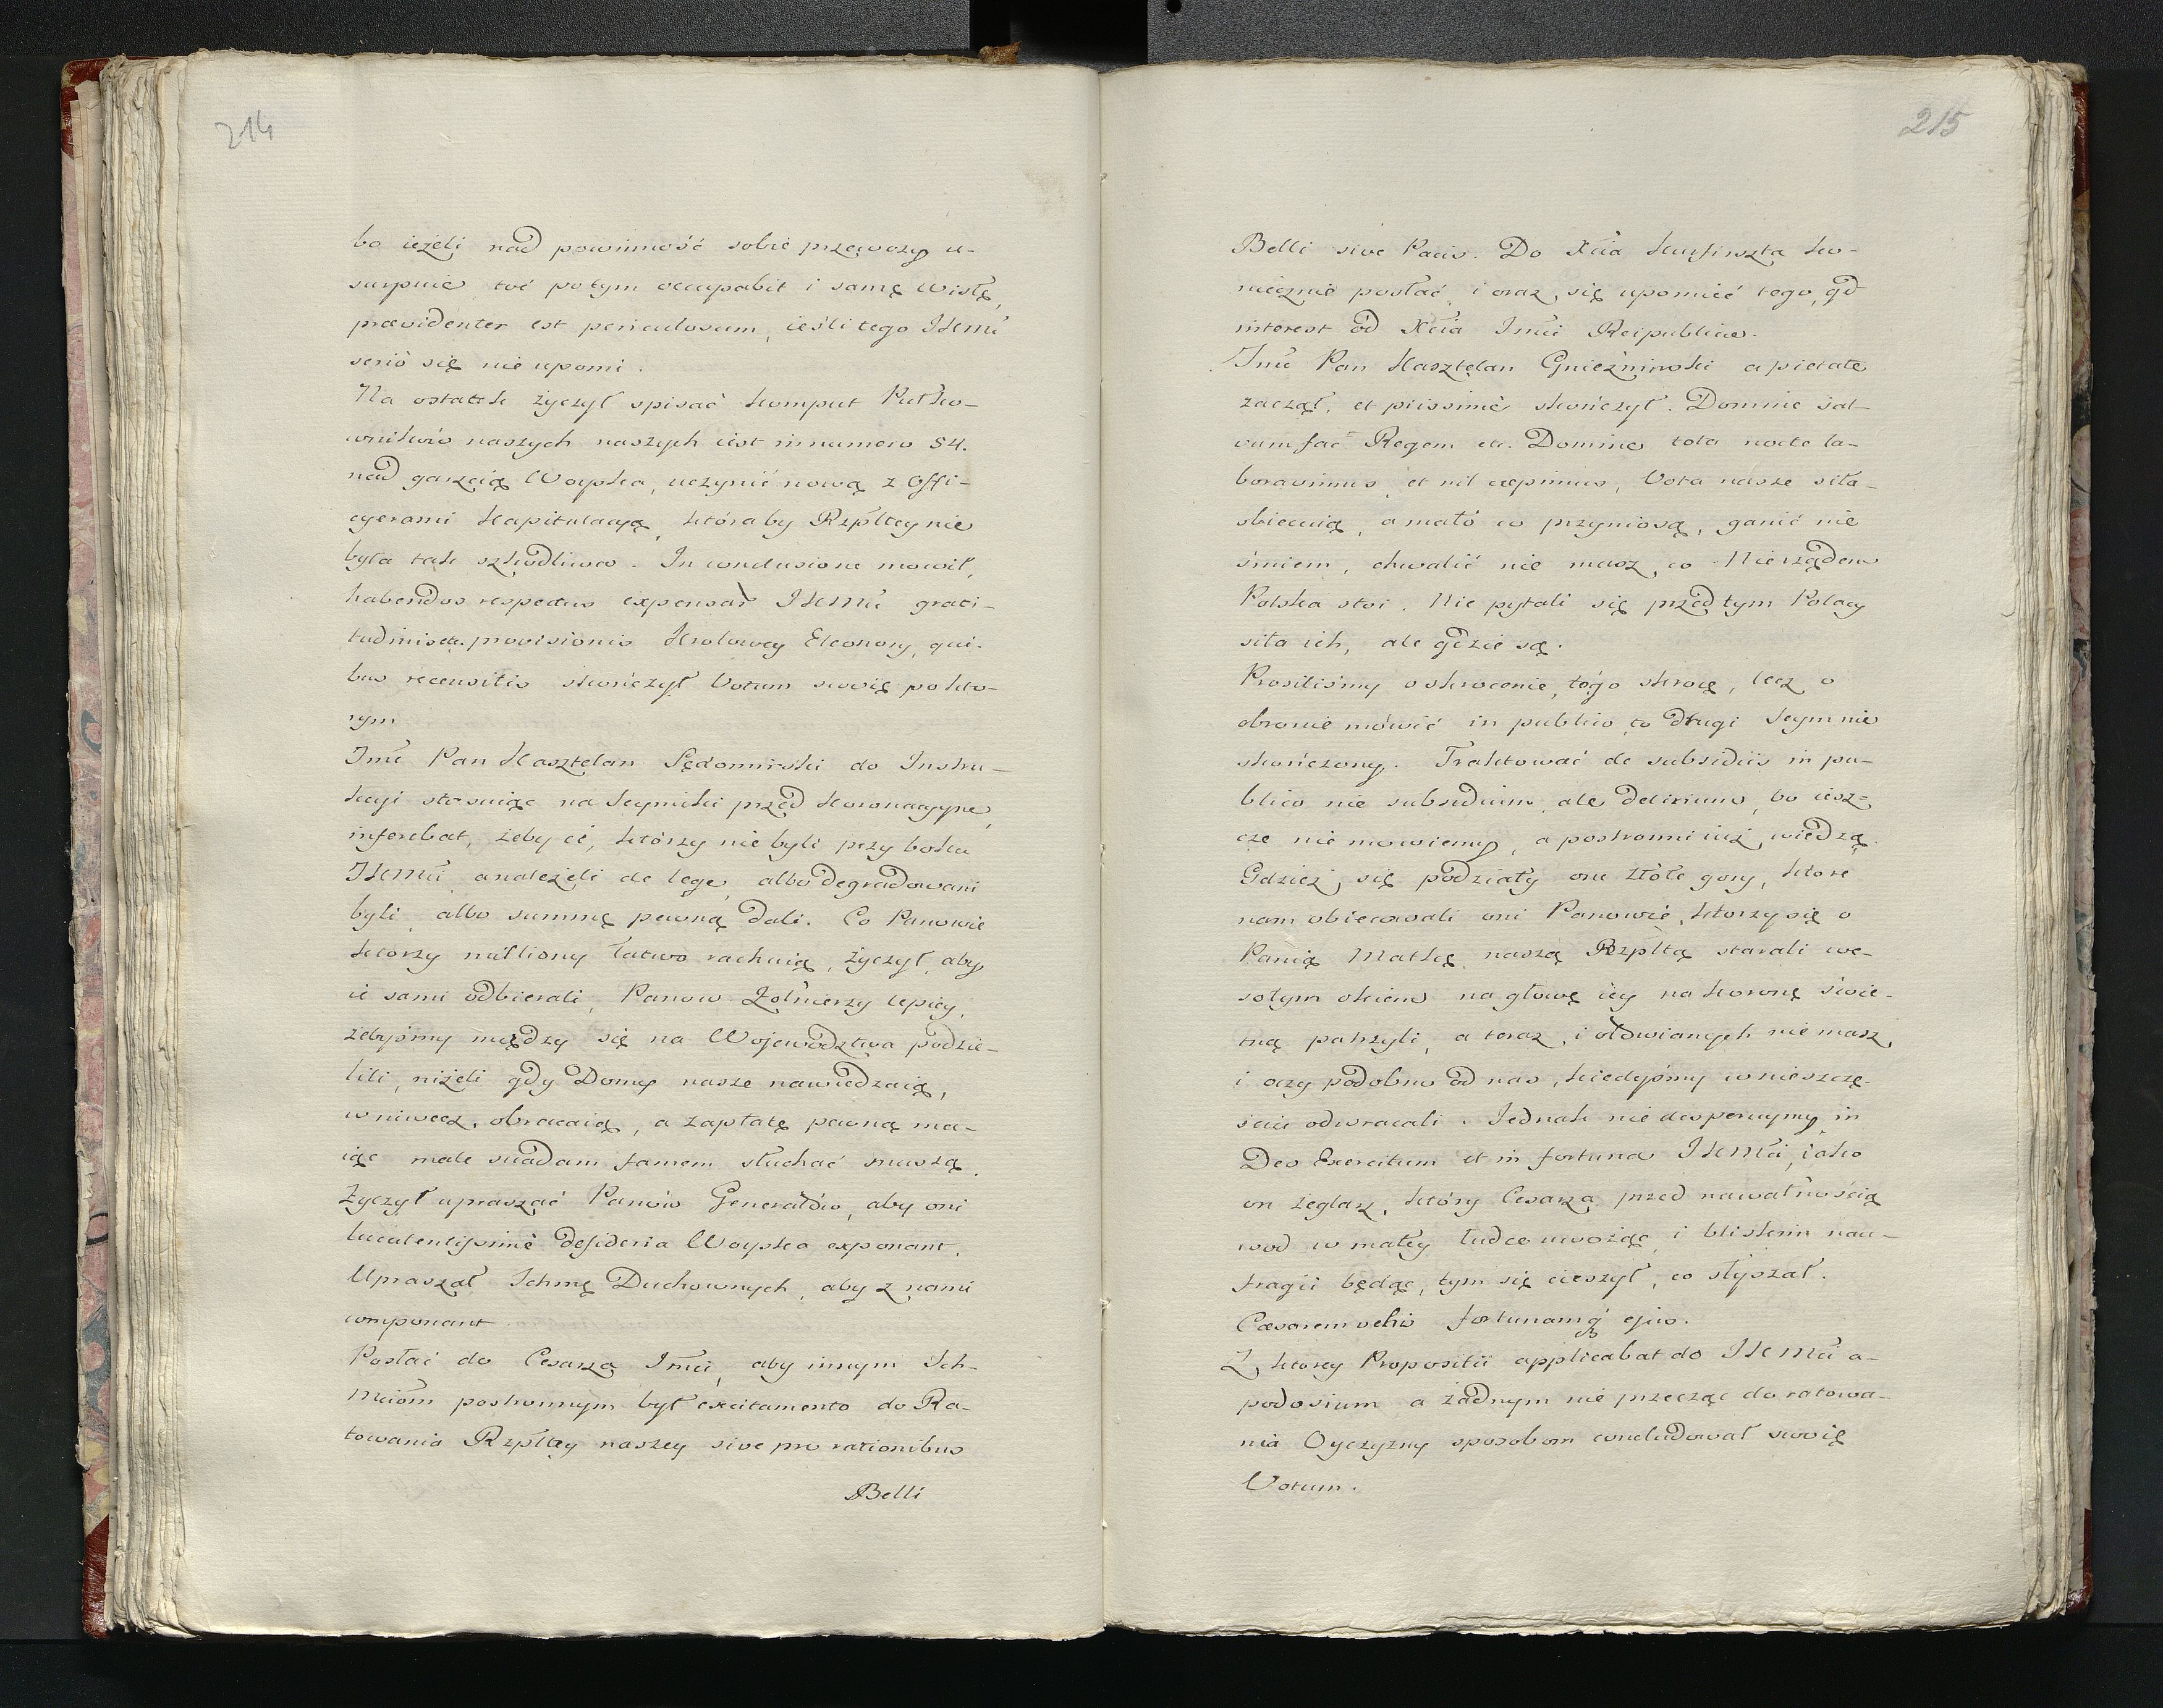 214
bo ieżeli nad powinność sobie przewozy u-
surpuie, toć potym occupabit i samę Wisłę,
prævidenter est periculosum, ieśli tego JKMć
seriò się nie upomi.
Na ostatek życzył spisać komput Putko-
wników naszych naszych iest in numero 84.
nad garzcią Woyska, uczynić nową z Offi-
cyerami Kapitulacyą, któraby Rzpltey nie
była tak szkodliwa. In conclusione mowił,
habendos respectus expensar JKMći grati-
tudinis etc. provisionis Krolowey Eleonory, qui-
bus recensitis skończył Votum swoię po kto-
rym
Jmć Pan Kasztelan Sędomirski do Instru-
kcyi stosuiąc na Seymiki przed Koronacyyne,
inferebat, żeby ći, którzy nie byli przy boku
JKMći, a należeli de lege, albo degradowani
byli, albo summę pewną dali. Co Panowie
ktorzy milliony łatwo rachuią, życzył, aby
ie sami odbierali, Panow Żołnierzy lepiey,
żebyśmy między się na Wojewodztwa podzie-
lili, niżeli gdy Domy nasze nawiedzaią,
w niwecz obracaią, a zapłatę pewną ma-
iąc male suadam famem słuchać muszą.
Życzył upraszać Panów Generałów, aby oni
luculentissimè desideria Woyska exponant.
Upraszał Ichmę Duchownych, aby z nami
componant.
Posłać do Cesarza Jmći, aby innym Ich-
Mćiom postronnym był excitamento do Ra-
towania Rzpltey naszey sive pro rationibus
Belli
215
Belli sive Pacis. Do Xcia Kurfirszta ko-
niecznie posłać, i oraz się upomnieć tego, qd
interest od Xcia Jmći Reipublicæ.
Jmć Pan Kasztelan Gnieźninski a pietate
zaczął, et piissimè skończył. Domine sal-
vum fac Regem etc. Domine tota nocte la-
boravimus, et nil cepimus, Vota nasze siła
obiecuią, a mało co przyniosą, ganić nie
śmiem, chwalić nie masz co. Nierządem
Polska stoi. Nie pytali się przed tym Polacy
siła ich, ale gdzie są.
Prosiliśmy o skrocenie, tógo skrocę, lecz o
obronie mówić in publico, to długi Seym nie
skończony. Traktować de subsidiis in pu-
blico nie subsidium, ale delirium, bo iesz=
cze nie mowiemy, a postronni iuż wiedzą.
Gdzież się podziały one złote gory, ktore
nam obiecowali oni Panowie, ktorzy się o
Panią Matkę naszą Rzpltą starali we-
sołym okiem na głowę iey na koronę świe-
tną patrzyli, a teraz, i ołowianych nie masz,
i oczy podobno od nas, kiedyśmy w nieszczę-
ściu odwracali. Jednak nie desperuymy, in
Deo Exercituum et in fortuna JKMći, iako
on żeglarz, który Cesarza przed nawałnością
wod w małey łudce uwożąc, i bliskim nau-
fragii będąc, tym się cieszył, co słyszał.
Cæsarem vehis fortunamq ejus.
Z ktorey Propositii applicabat do JKMći a-
podosium a żadnym nie przecząc do ratowa-
nia Oyczyzny sposobom concludował swoię
Votum.